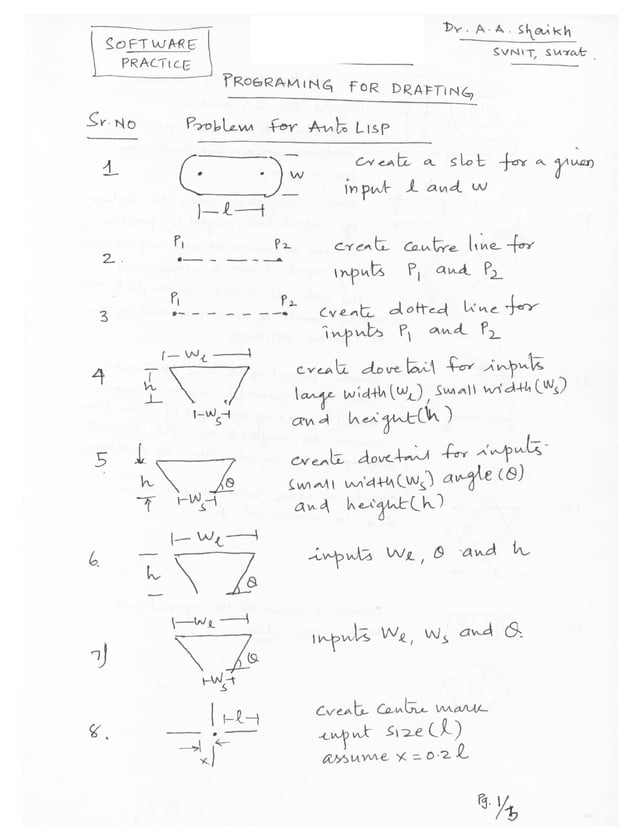 SOFTWARE
PRACTICE
Dr. A. A. Shaikh
SVNIT, Surat.
PROGRAMING FOR DRAFTING
Sr. NO Problem for Auto LISP
1 W l create a slot for a given
input l and w
2. P1 P2 create centre line for
inputs P1 and P2
3 P1 P2 create dotted line for
inputs P1 and P2
4 Wl h Ws create dovetail for inputs
large width (Wl), small width (Ws)
and height (h)
5 h Ws θ create dovetail for inputs
small width (Ws) angle (θ)
and height (h)
6. Wl h θ inputs Wl, θ and h
7) Wl Ws θ inputs Wl, Ws and θ.
8. l x create centre mark
input size (l)
assume x = 0.2 l
Pg. 1/5